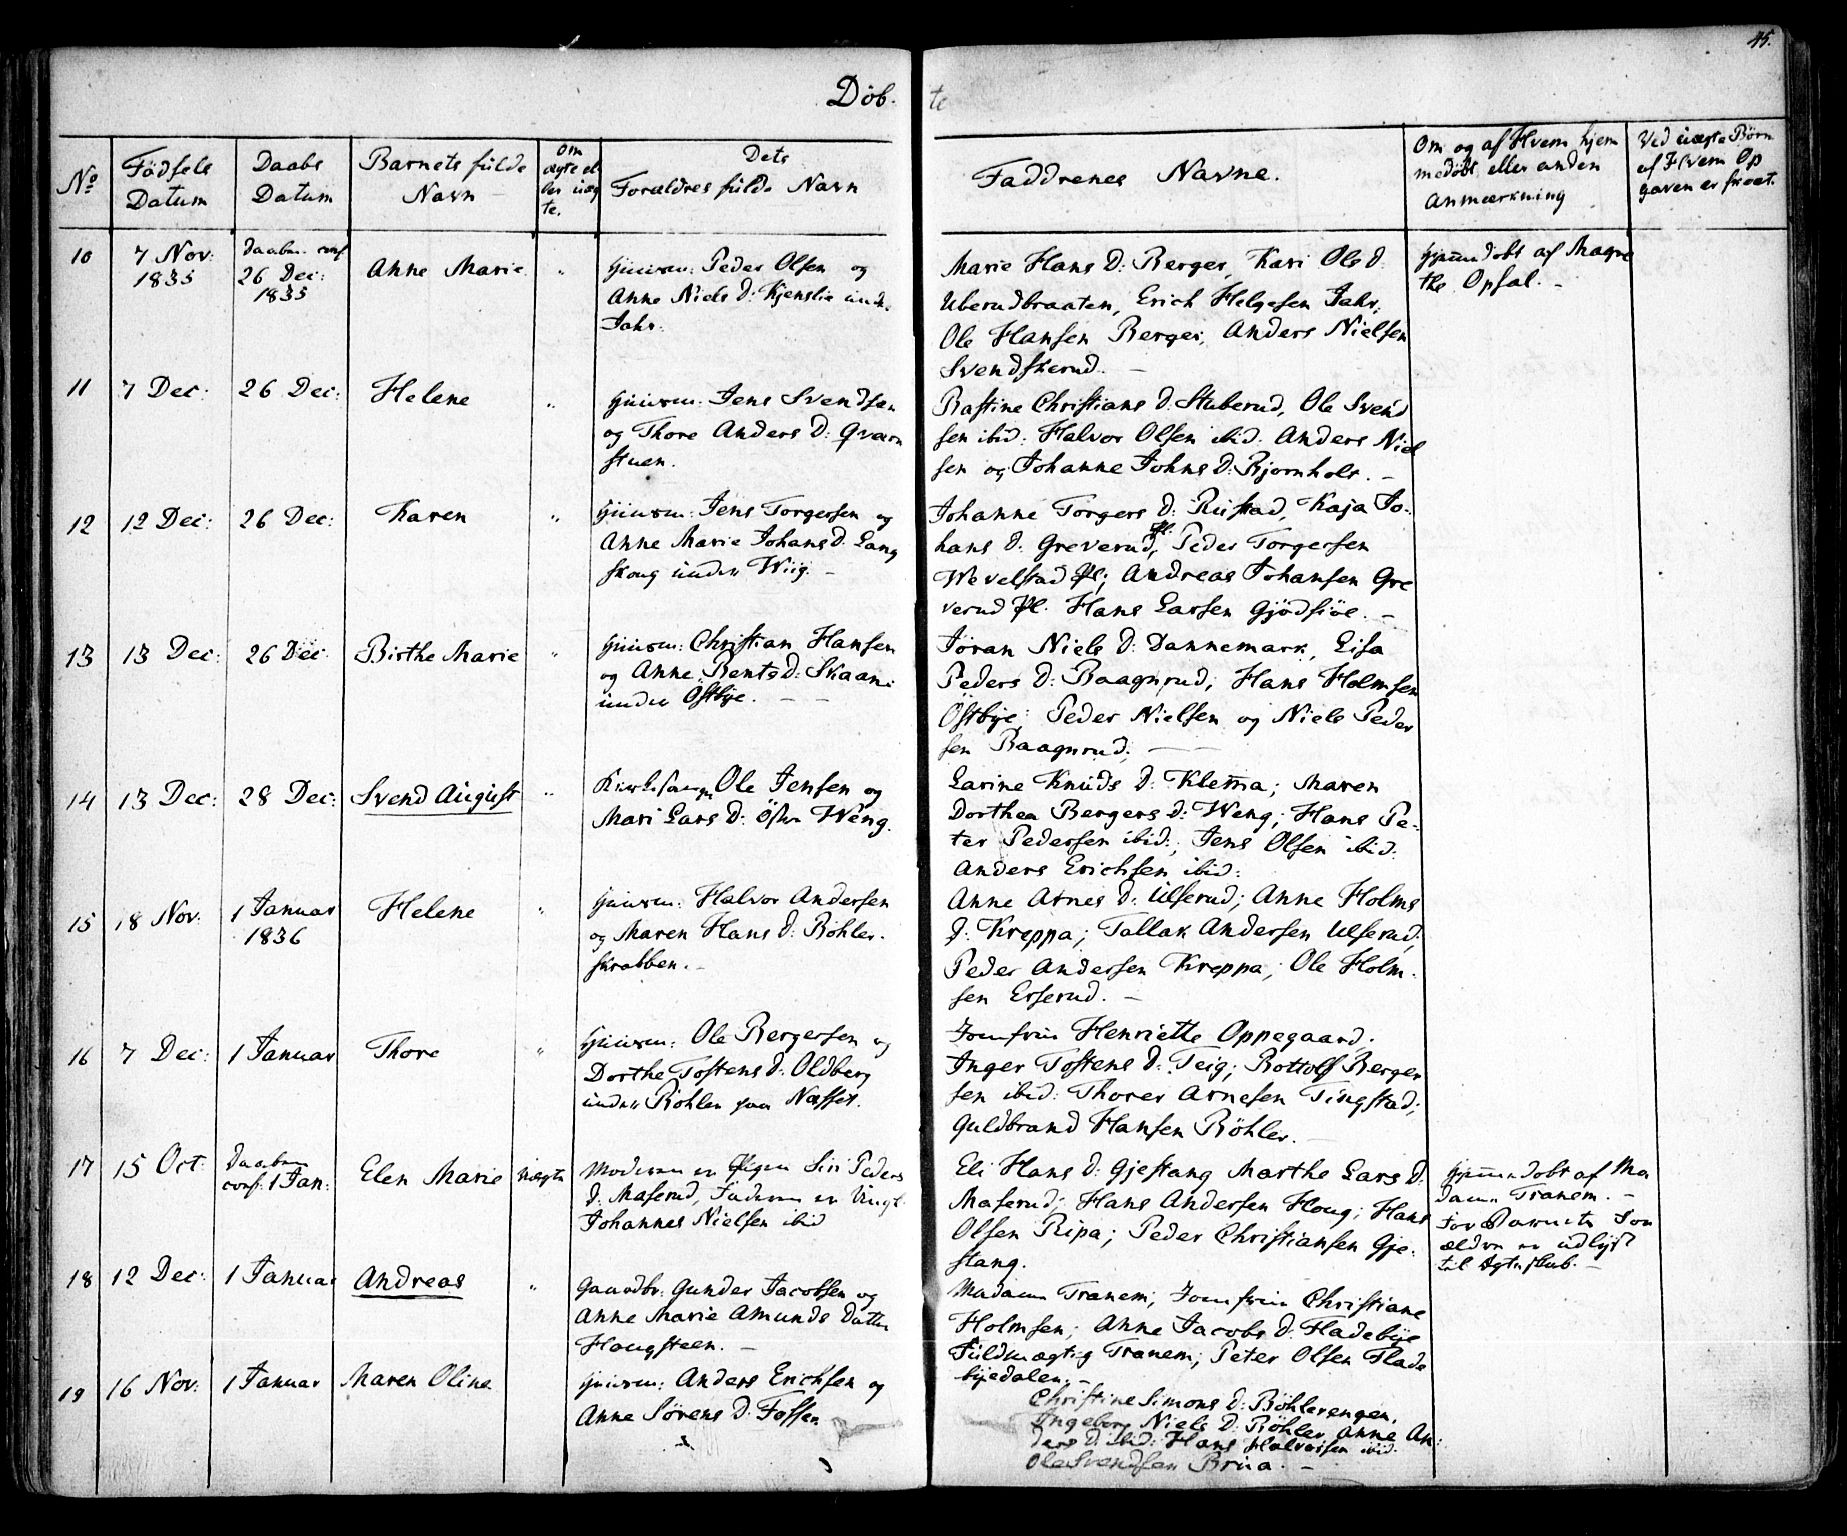 45.
Döb. te
No
Födsels Datum
Daabs Datum
Barnets fulde Navn
Om ægte eller uægte.
Dets Forældres fulde Navn
Faddrenes Navne.
Om og af Hvem hjemmedöbt, eller anden Anmærkning
Ved uægte Börn af Hvem Opgaven er skeet.
10
7 Nov: 1835
Daaben conf 26 Dec: 1835
Anne Marie
"
Huusm: Peder Olsen og
Anne Niels D: Kjenslie und.
Jahr.
Marie Hans D: Berger, Kari Ols D
Uberudbraaten, Erich Helgesen Jahr,
Ole Hansen Berger, Anders Nielsen
Svendskerud. —
Hjemmdöbt af Magre
the Opsal. —
11
7 Dec:
26 Dec:
Helene
"
Huusm: Jens Svendsen
og Thore Anders D: Qvern
stuen.
Bastine Christians D: Stuberud, Ole Svend
sen ibid: Halvor Olsen ibid. Anders Niel
sen og Johanne Johns D: Bjornhols. —
12
12 Dec:
26 Dec:
Karen
"
Huusm: Jens Torgersen og
Anne Marie Johans D. Lang
skoug under Wiig. —
Johanne Torgers D: Rustad, Kaja Jo-
hans D: Greverud Pl., Peder Torgersen
Wevelstad Pl; Andreas Johansen Gre
verud Pl. Hans Larsen Gjödsiöe. —
13
13 Dec:
26 Dec:
Birthe Marie
"
Huusm: Christian Hansen
og Anne Bents D: Skaani
under Ostbye. — —
Joran Niels D: Dannemark, Lisa
Peders D: Baagnrud; Hans Holmsen
Ostbye; Peder Nielsen og Niels Peder
sen Baagnrud; —
14
13 Dec:
28 Dec:
Svend August
"
Kirkesang. Ole Jensen og
Mari Lars D: Östre Weng.
Larine Knuds D: Klemma; Maren
Dorthea Bergers D: Weng; Hans Pe-
ter Pedersen ibid:, Jens Olsen ibid:
Anders Erichsen ibid:
15
18 Nov:
1 Januar 1836
Helene
"
Huusm: Halvor Andersen
og Maren Hans D: Böhler-
skrabben. —
Anne Arnes D: Ulserud; Anne Holms
D: Kreppa; Tallak Andersen Ulserud;
Peder Andersen Kreppa; Ole Holm-
sen Erserud. —
16
7 Dec:
1 Januar
Thore
"
Huusm: Ole Bergersen og
Dorthe Tostens D: Oldberg
under Böhler paa Næsset.
Jomfru Henriette Oppegaard.
Inger Tostens D: Teig; Bottolf Berger
sen ibid: Thorer Arnesen Tingstad;
Guldbrand Hansen Böhler. —
17
15 Oct:
Daaben conf. 1 Jan:
Elen Marie
uægte
Moderen er Pigen Siri Peders
D: Maserud, Faderen er Ungk.
Johannes Nielsen ibid
Eli Hans D: Gjestang Marthe Lars D:
Maserud; Hans Andersen Houg; Hans
Olsen Ripa; Peder Christiansen Gje-
stang.
Hjemmdobt af Ma
dame Tranem. —
For Barnets For
ældre er udlyst
til Ægteskab. —
18
12 Dec:
1 Januar
Andreas
"
Gaardbr: Gunder Jacobsen og
Anne Marie Amunds Datter
Hougsteen. —
Madame Tranem, Jomfrue Christiane
Holmsen; Anne Jacobs D: Fladebye
Fuldmægtig Tranem; Peter Olsen Flade
byedalen. —
19
16 Nov:
1 Januar
Maren Oline
Huusm: Anders Erichsen og
Anne Sörens D: Fossen
Christine Simons D: Böhlerengen,
Ingeborg Niels D: Böhler Anne An-
ders D: ibid: Hans Halvorsen ibid.
Ole Svendsen Brua. —